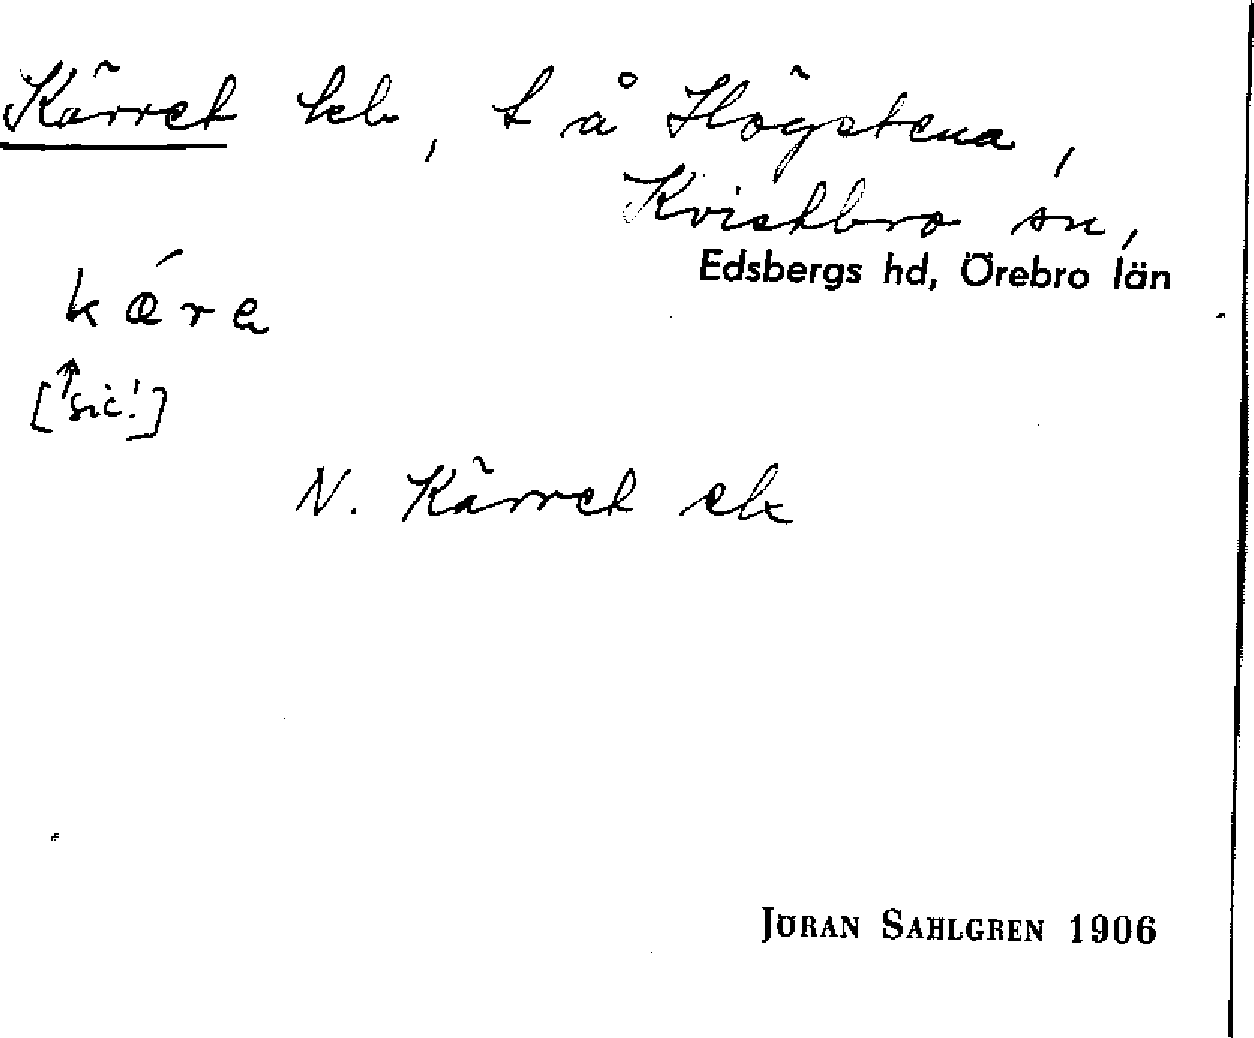 Kärret lch, t å Högstena,
Kvistbro sn,
Edsbergs hd, Örebro län
kǽra
[↑sic!]
N. Kärret ek
JÖRAN SAHLGREN 1906